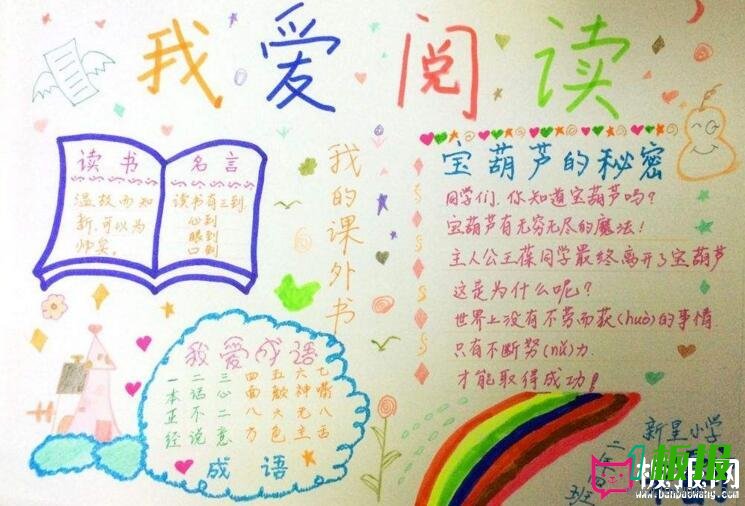 我爱阅读
读书
温故而知
新,可以为
师矣。
名言
读书有三到
心到
眼到
口到
我的课外书
宝葫芦的秘密
同学们,你知道宝葫芦吗?
宝葫芦有无穷无尽的魔法!
主人公王葆同学最终离开了宝葫芦
这是为什么呢?
世界上没有不劳而获(huò)的事情
只有不断努(nǔ)力
才能取得成功!
我爱成语
一本正经
二话不说
三心二意
四面八方
五颜六色
六神无主
七嘴八舌
成语
新星小学
班
板报网
www.banbaowang.com